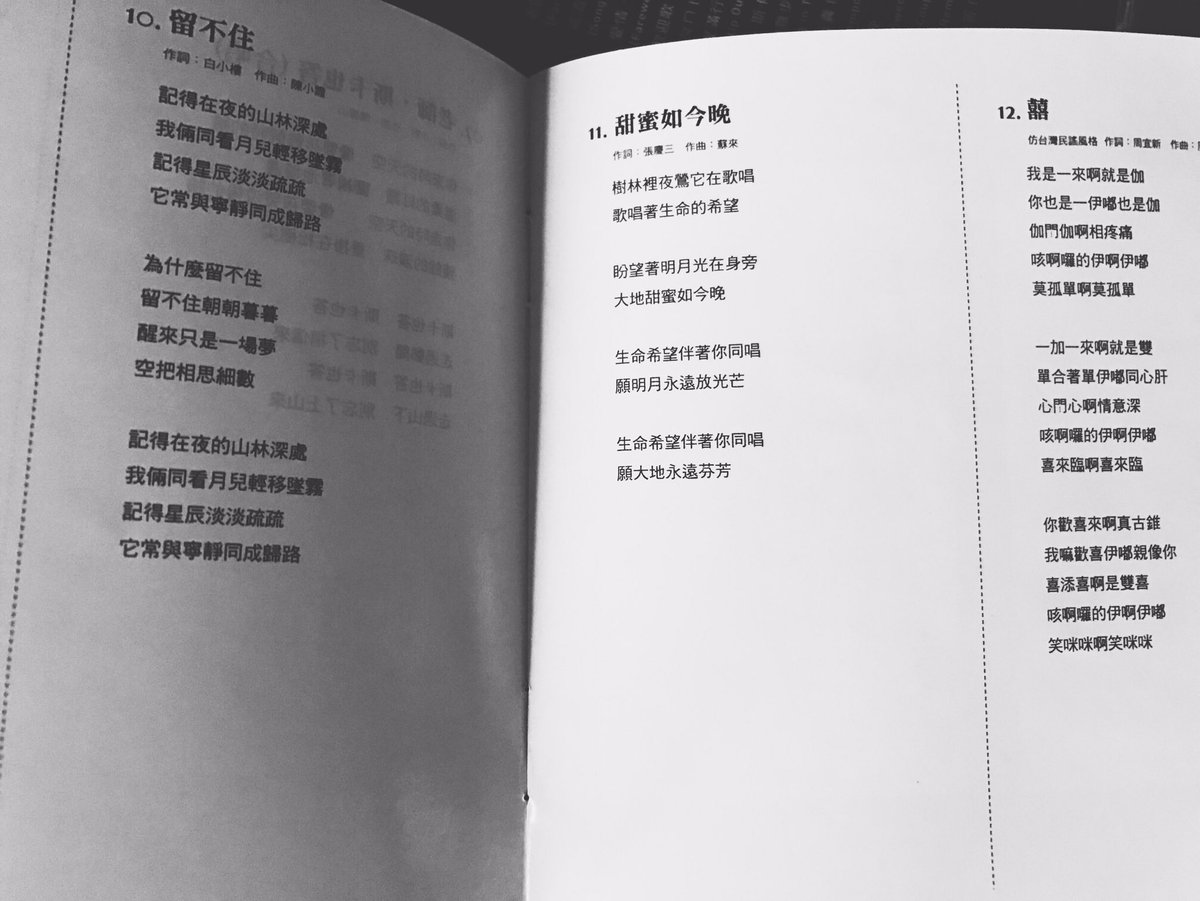 10. 留不住
作詞：白小樓 作曲：陳小霞
記得在夜的山林深處
我倆同看月兒輕移墜霧
記得星辰淡淡疏疏
它常與寧靜同成歸路
為什麼留不住
留不住朝朝暮暮
醒來只是一場夢
空把相思細數
記得在夜的山林深處
我倆同看月兒輕移墜霧
記得星辰淡淡疏疏
它常與寧靜同成歸路
11. 甜蜜如今晚
作詞：張慶三 作曲：蘇來
樹林裡夜鶯它在歌唱
歌唱著生命的希望
盼望著明月光在身旁
大地甜蜜如今晚
生命希望伴著你同唱
願明月永遠放光芒
生命希望伴著你同唱
願大地永遠芬芳
12. 囍
仿台灣民謠風格 作詞：周宜新 作曲：
我是一來啊就是伽
你也是一伊嘟也是伽
伽門伽啊相疼痛
咳啊囉的伊啊伊嘟
莫孤單啊莫孤單
一加一來啊就是雙
單合著單伊嘟同心肝
心門心啊情意深
咳啊囉的伊啊伊嘟
喜來臨啊喜來臨
你歡喜來啊真古錐
我嘛歡喜伊嘟親像你
喜添喜啊是雙喜
咳啊囉的伊啊伊嘟
笑咪咪啊笑咪咪